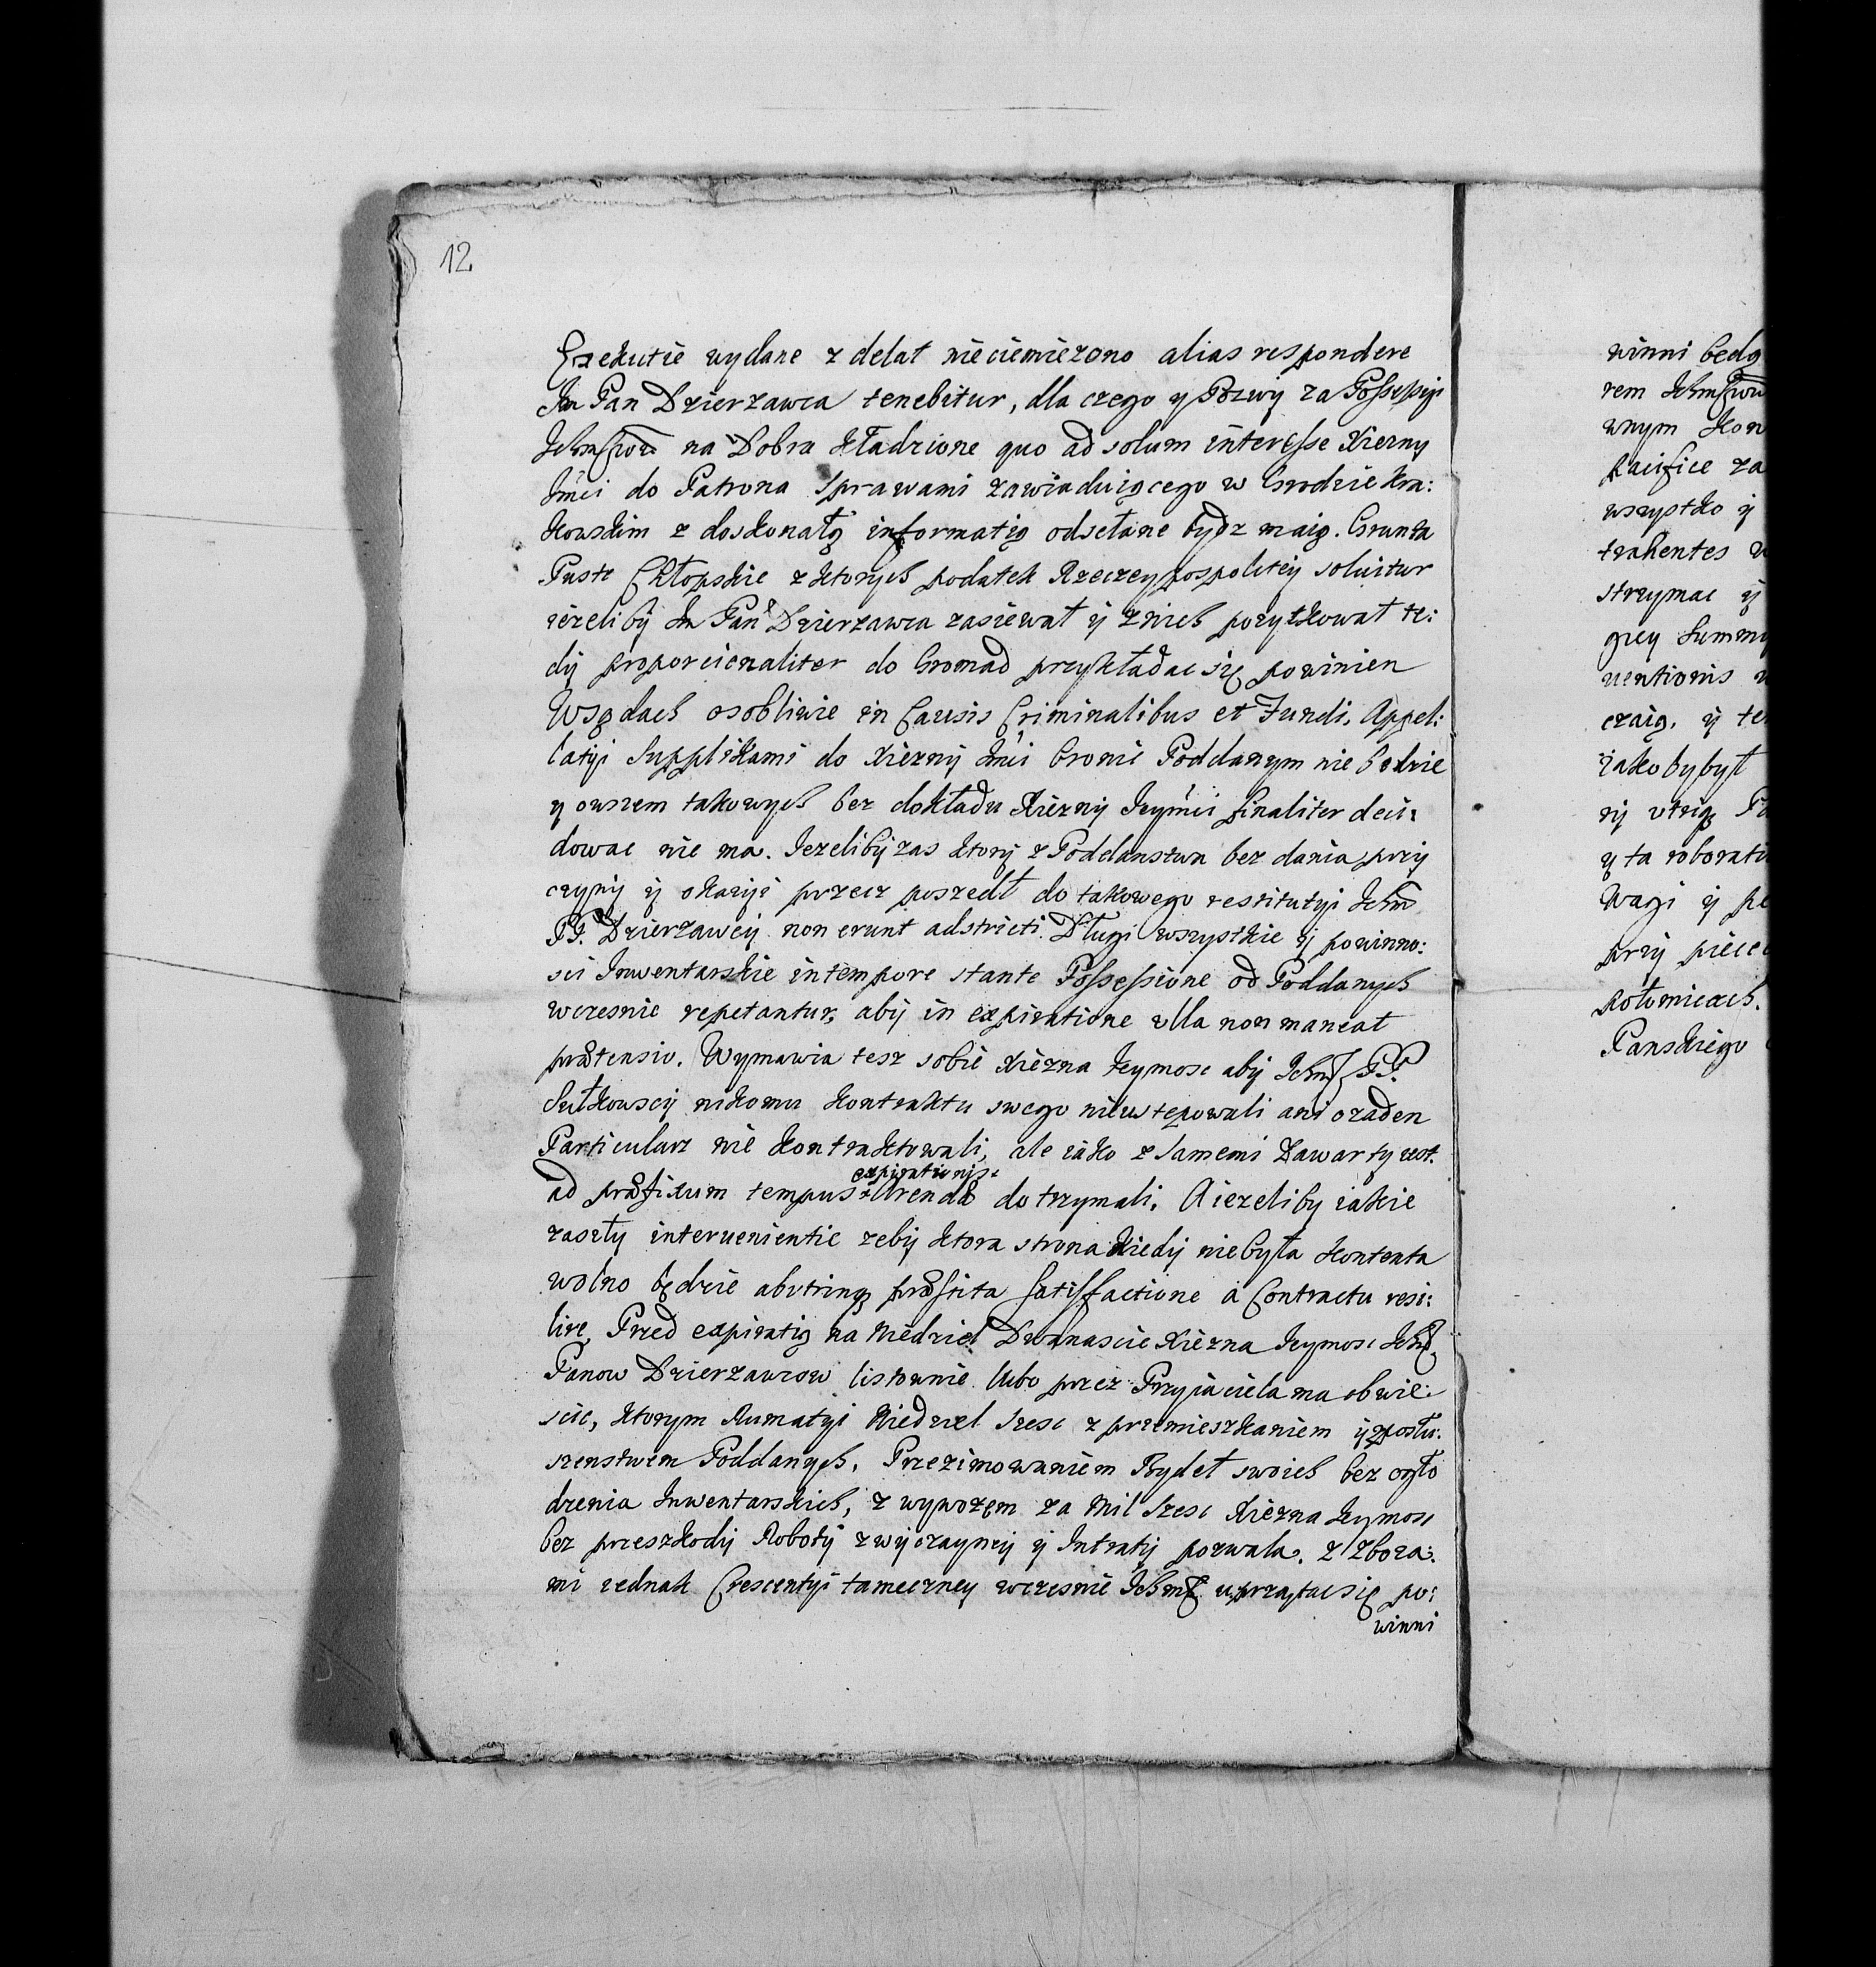 12
Exekutie wydane z delat nieciemiezono alias respondere
Jm Pan Dzierzawca tenebitur, dla czego y Pozwÿ za Possessÿi
na Dobra kładzione quo ad solum interesse Xiezny
Jmci do Patrona Sprawami zawiaduiącego w Grodzie Kra:
kowskim z doskonałą informatią odsełane bydz maią. Grunta
Puste Chłopskie z ktorych podatek Rzeczeypospolitey soluitur
iezelibÿ Jm Pan Dzierzawca zasiewał ÿ znich pozytkował te:
dÿ proporcionaliter do Gromad przykładac się powinien
Wsądach osobliwie in Causis Criminalibus et Fundi, Appel:
latÿi Supplikami do Xieznÿ Jmci bronic Poddanym nie bedzie
y owszem takowych bez dokładu Xieznÿ Jeymci finaliter deci:
dowac nie ma. Iezelibÿ zas ktorÿ z Poddanstwa bez dania przÿ
czynÿ ÿ okazÿi precz poszedł do takowego restitutÿi Ichm
PP. Dzierzawcÿ non erunt adstricti. Długi wszystkie ÿ powinno:
sci Inwentarskie in tempore stante Possessione od Poddanych
wczesnie repetantur, abÿ in expiratione vlla non maneat
prætensio. Wymawia tesz sobie Xiezna Jeymosc abÿ Ichm PP.
Sułkowscÿ nikomu kontraktu swego nieustępowali ani ozaden
Particularz nie kontraktowali, ale iako z Samemi Zawarty iest.
expirationis
ad præfixum tempus Arendæ dotrzymali. A iezeliby iakie
zaszły interuenientie zebÿ ktora strona kiedÿ niebyła kontenta
wolno będzie abutrinq præstita satisfactione à Contractu resi:
lire. Przed expiratią na Niedziel Dwanascie Xiezna Jeymosc Ichm
Panow Dzierzawcow listownie lubo przez Przyiaciela ma obwie:
scic, ktorym Rumatÿi Niedziel Szesc z przemieszkaniem ÿ zposłu:
szenstwem Poddanych, Przezimowaniem Bydeł swoich bez ogło
dzenia Inwentarskich, z wywozem za Mil Szesc Xiezna Jeymosc
bez przeszkodÿ Robotÿ zwÿczaynÿ ÿ Intratÿ pozwala. Z Zboza:
mi iednak Crescentÿi tameczney wczesnie Ichm uprzątac się po:
winni
winni będą
rem
wnym Kon
pacifice za
wszystko ÿ
trahentes
strzymac ÿ
grey Summ
uentionis
czaią, ÿ te
iakobybył
rÿ vtriq
y ta roborat
Wagi ÿ pe
przÿ piecc
połomicach.
Panskiego